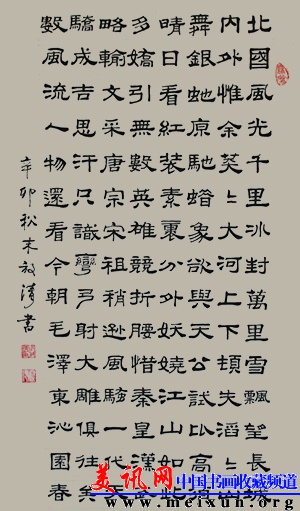 北國風光千里冰封萬里雪飄望長城
內外惟余莽〻大河上下頓失滔〻山
舞銀虵原馳蜡象欲與天公試比高須
晴日看紅裝素裹分外妖嬈江山如此
多嬌引無數英雄競折腰惜秦皇漢武
略輸文采唐宗宋祖稍遜風騷一代天
驕成吉思汗只識彎弓射大雕俱往矣
數風流人物還看今朝毛澤東沁園春
辛卯秋末書
美讯网 中国书画收藏频道
www.meixun.org